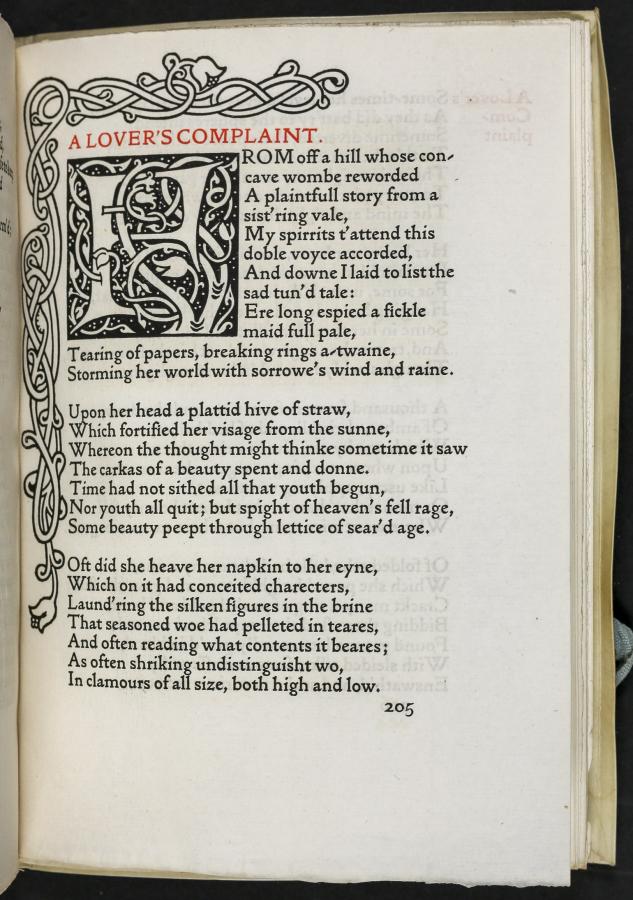 A LOVER'S COMPLAINT.
FROM off a hill whose con-
cave wombe reworded
A plaintfull story from a
sist'ring vale,
My spirrits t'attend this
doble voyce accorded,
And downe I laid to list the
sad tun'd tale:
Ere long espied a fickle
maid full pale,
Tearing of papers, breaking rings a-twaine,
Storming her world with sorrowe's wind and raine.

Upon her head a plattid hive of straw,
Which fortified her visage from the sunne,
Whereon the thought might thinke sometime it saw
The carkas of a beauty spent and donne.
Time had not sithed all that youth begun,
Nor youth all quit; but spight of heaven's fell rage,
Some beauty peept through lettice of sear'd age.

Oft did she heave her napkin to her eyne,
Which on it had conceited charecters,
Laund'ring the silken figures in the brine
That seasoned woe had pelleted in teares,
And often reading what contents it beares;
As often shriking undistinguisht wo,
In clamours of all size, both high and low.
205